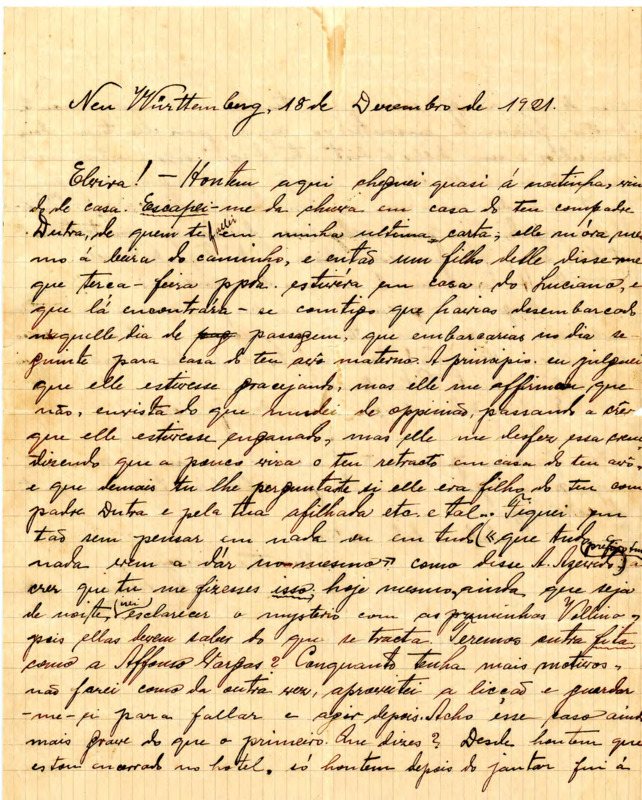 Neu Württemberg, 18 de Dezembro de 1921.
Elvira! - Hontem aqui cheguei quasi á noitinha, vin
do de casa. Escapei-me da chuva em casa do teu compadre
Dutra, de quem te fallei em minha ultima carta; elle móra mes
mo á beira do caminho, e então um filho delle disse-me
que terca-feira ppda. estivéra em casa do Luciano, e
que lá encontrára-se comtigo que havias desembarcado
naquelle dia de passagem, que embarcarias no dia se
guinte para casa do teu avô materno. A principio eu julguei
que elle estivesse gracejando, mas elle me affirmou que
não, em vista do que mudei de oppinião, passando a crêr
que elle estivesse enganado, mas elle me desfez essa crença
dizendo que a pouco vira o teu retracto em casa do teu avô
e que demais tu lhe perguntaste si elle era filho do teu com
padre Dutra e pela tua afilhada etc. e tal... Fiquei en
tão sem pensar em nada ou em tudo («que tudo
nada vem a dár no mesmo» como disse A. Azevedo)
crer que tu me fizesses isso, hoje mesmo, ainda que seja
de noite, irei esclarecer o mysterio com as priminhas Vollino,
pois ellas devem saber do que se tracta. Teremos outra fita
como a Affonso Vargas? Conquanto tenha mais motivos,
não farei como da outra vez, aproveitei a licção e guardar
-me-ei para fallar e agir depois. Acho ésse caso ainda
mais grave do que o primeiro. Que dizes? Desde hontem que
estou encerrado no hotel, só hontem depois do jantar fui á